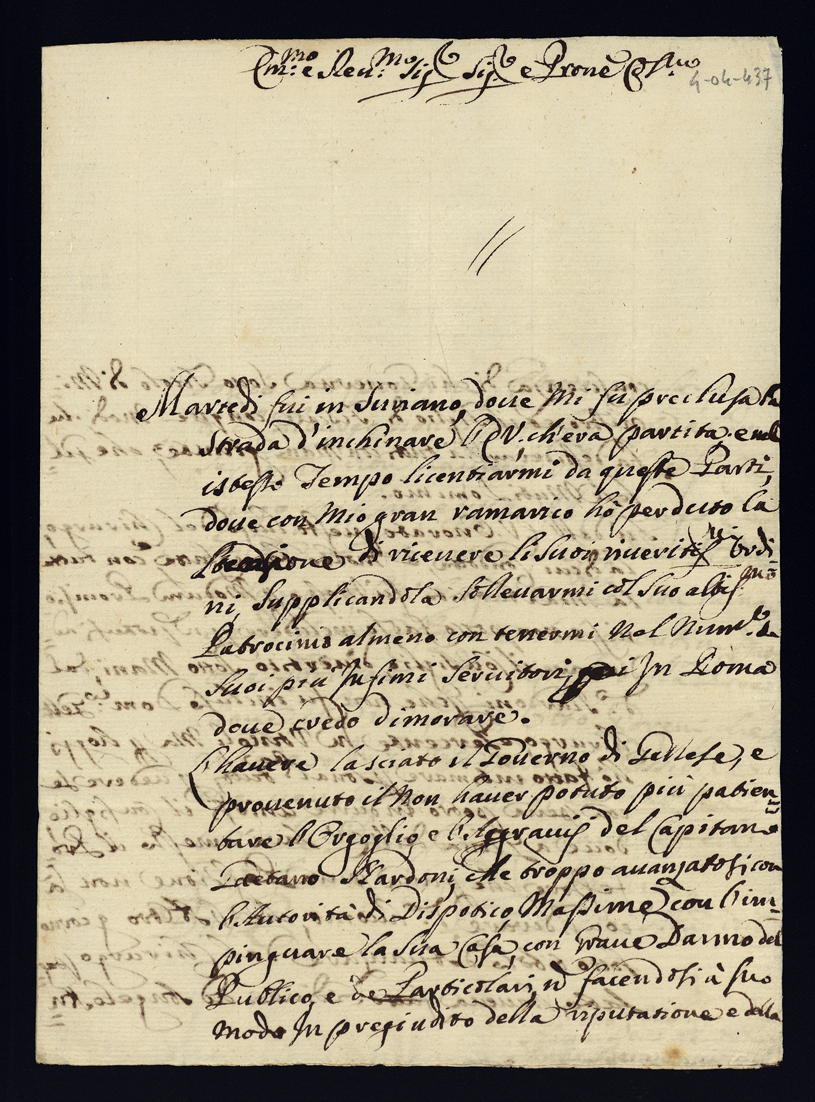 Em.mo e Reu.mo Sig.r Sig.r e Prone Col.mo
4-04-437
Martedi fui in Suriano, doue mi fu preclusa la
strada d'inchinare l'E.V. ch'era partita, e nel
istesso Tempo licentiarmi da queste Parti,
doue con mio gran ramarico hò perduto la
di riceuere li suoi riueriti.mi ordi-
ni, supplicandola solleuarmi col suo altis.mo
Patrocinio almeno con tenermi nel num.o de
suoi piu infimi seruitori, in Roma
doue credo dimorare.
L'hauere lasciato il Gouerno di Gallese, è
prouenuto il non hauer potuto più patien-
tare l'Orgoglio e del Capitano
Gaetano Nardoni, che troppo auanzatosi con
l'Autorità di Dispotico, Massime con l'im-
pinguare la sua Casa, con graue Danno del
Publico, e de Particolari, facendosi à suo
modo in pregiuditio della riputatione e della